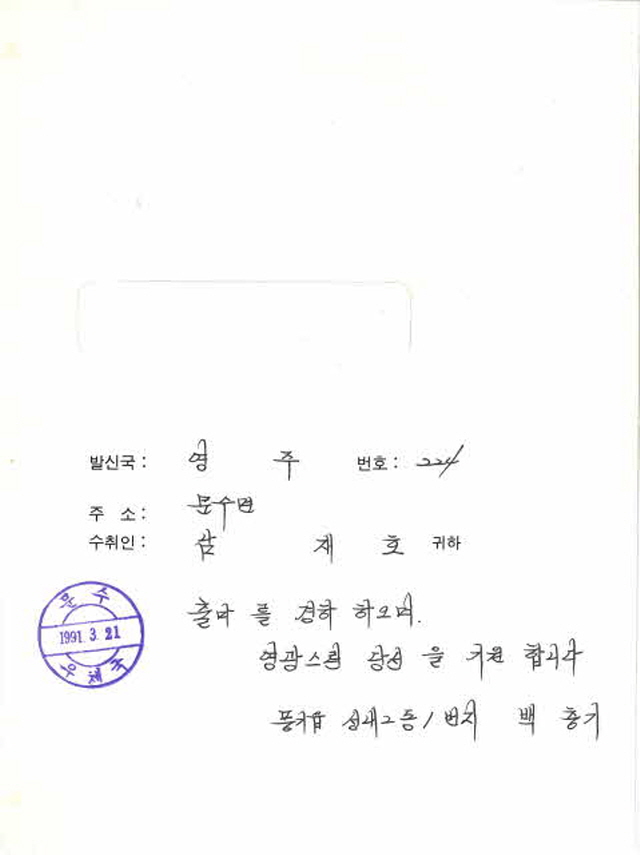 발신국 : 영 주 번호 : 224
주 소 : 문수면
수취인 : 삼 재 호 귀하
출마 를 경하 하오며.
영광스런 당선 을 기원 합니다
풍기읍 성내2동 1번지 백 흥기
문수
1991. 3. 21
우체국